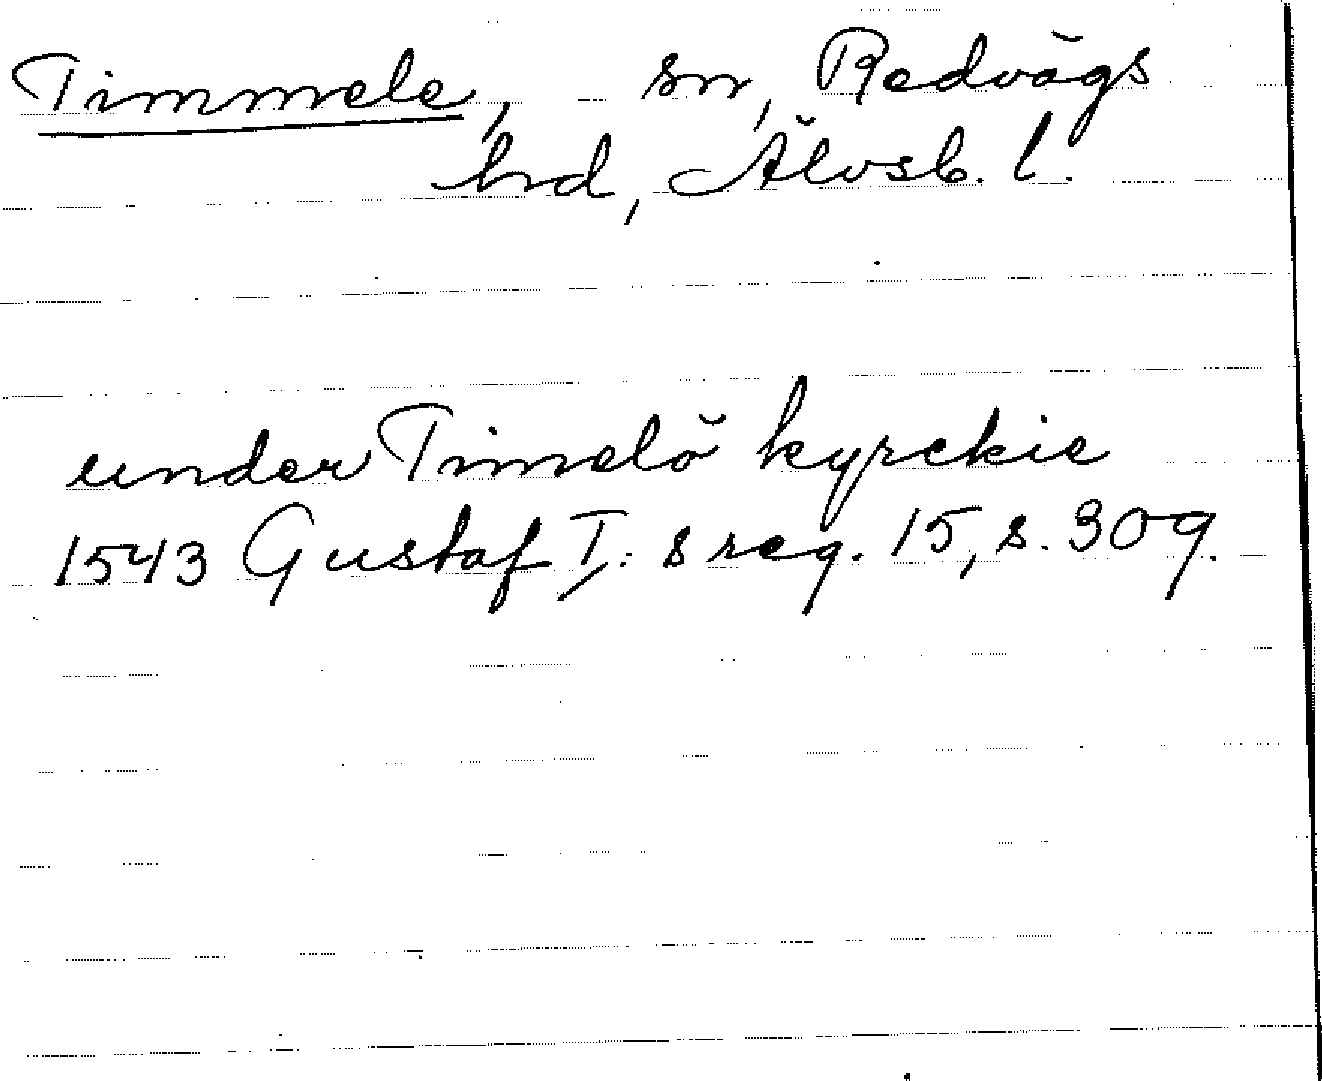 Timmele, sn, Redvägs
hd, Älvsb. l.
under Timelö kyrckie
1543 Gustaf I:s reg. 15, s. 309.